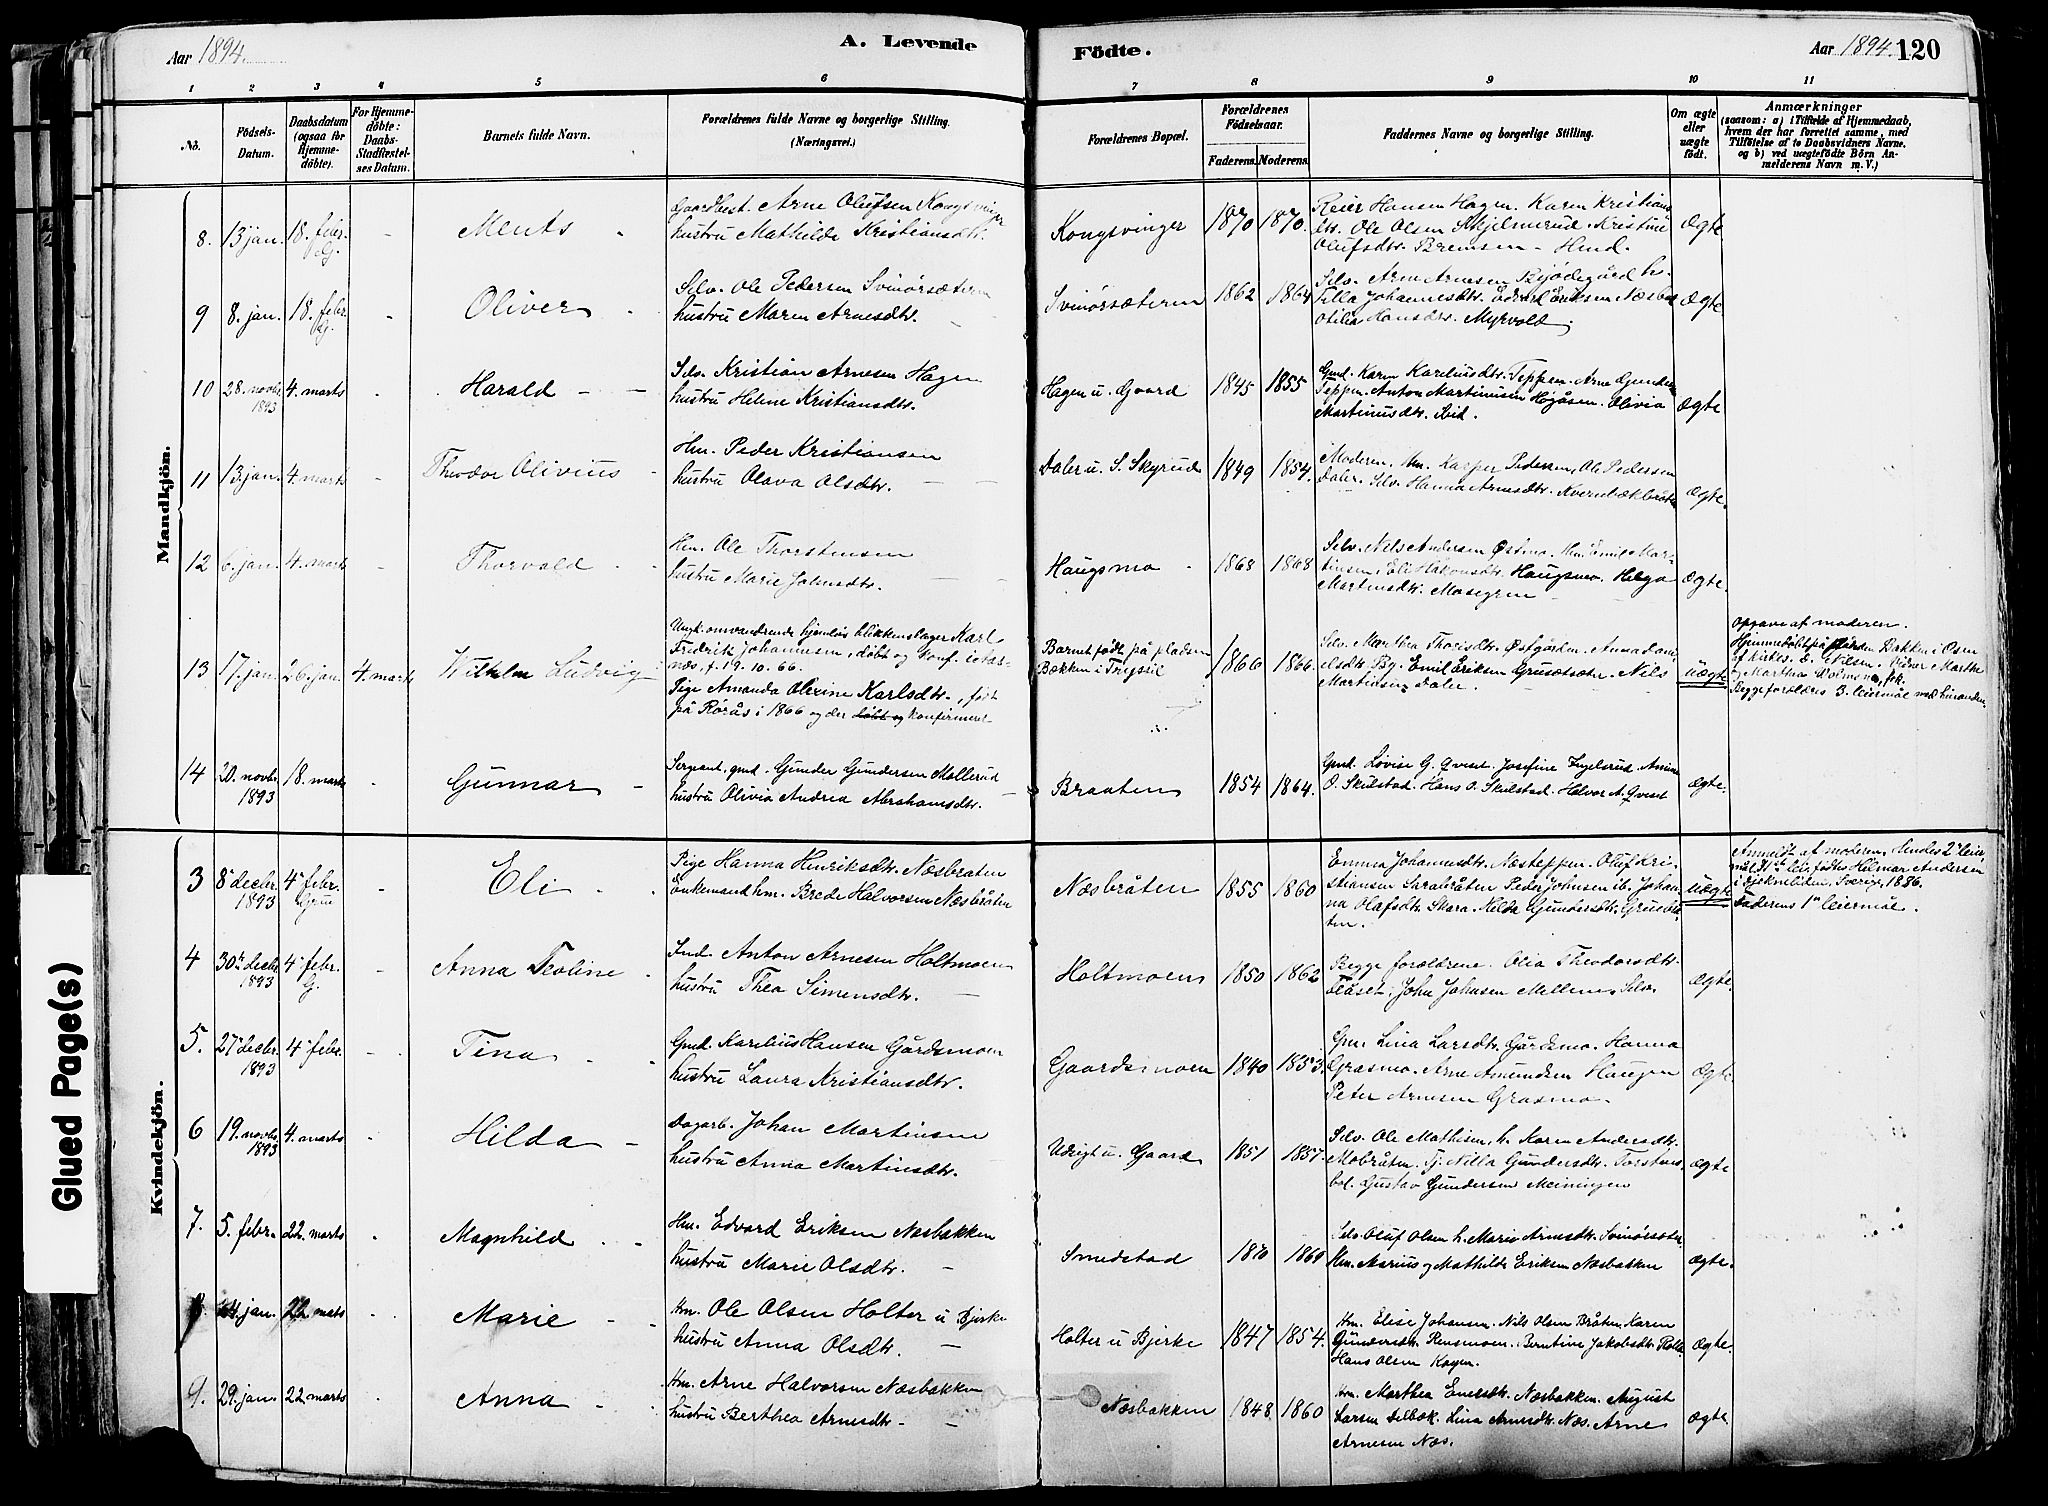 Aar 1894.
A. Levende
Födte.
Aar 1894.
120
1 2 3 4 5 6 7 8 9 10 11
No.
Födsels-Datum.
Daabsdatum (ogsaa for Hjemmedöbte).
For Hjemmedöbte: Daabs-Stadfæstelses Datum.
Barnets fulde Navn.
Forældrenes fulde Navne og borgerlige Stilling. (Næringsvei.)
Forældrenes Bopæl.
Forældrenes Födselsaar.
Faderens. Moderens.
Faddernes Navne og borgerlige Stilling.
Om ægte eller uægte födt.
Anmærkninger
(saasom: a) i Tilfælde af Hjemmedaab,
hvem der har forrettet samme, med
Tilföielse af to Daabsvidners Navne,
og b) ved uægtefödte Börn Anmelderens Navn m. V.)
Mandkjön.
8. 13 jan. 18. febr. Gj. - Ments
Gaardbest. Arne Olufsen Kongsvinger
hustru Mathilde Kristiansdtr.
Kongsvinger 1870 1870.
Reier Hansen Hagen. Karen Kristians-
dtr. Ole Olsen Skjelmerud. Kristine
Olufsdtr. Bremsen - Hmd.
Ægte
9 8. jan. 18. febr. Gj. - Oliver
Selv. Ole Pedersen Svinörsætern
hustru Maren Arnesdtr.
Svinörsætern 1862 1864
Selv. Arne Arnesen Bjödegård h.
Tilla Johannesdtr. Edvard Eriksen Næsbak
Otilia Hansdtr. Myrvold.
Ægte
10 28. novbr. 1893 4. marts - Harald
Selv. Kristian Arnesen Hagen
hustru Helene Kristiansdtr.
Hagen u. Gaard 1845 1855
Gmd. Karen Kareliusdtr. Teppen. Arne Gunders.
Teppen. Anton Martinusen Högåsen. Olivia
Martinusdtr. ibid.
Ægte
11 13 jan. 4. marts - Theodor Olivius
Hm. Peder Kristiansen
hustru Olava Olsdtr.
Daler u. S. Skyrud 1849 1854.
Moderen. Hm. Kasper Pedersen, Ole Pedersen
Daler. Selv. Hanna Arnesdtr. Kvernbækbråten
Ægte.
12 6. jan. 4. marts - Thorvald
Hm. Ole Thorstensen
hustru Marie Johnsdtr.
Haugsmo 1868 1868
Selv. Nils Andersen Østmo. Hm. Emil Mar-
tinsen. Eli Håkonsdtr. Haugsmo. Helga
Martinsdtr. Mosegren
Ægte.
13 17. jan. 26. jan. 4. marts Wilhelm Ludvig
Ungk. omvandrende hjemløs blikkenslager Karl
Fredrik Johannesen, döbt og konf. i Aas-
næs, f. 19.10.66.
Pige Amanda Olixine Karlsdtr., født
på Rörås i 1866 og der döbt og konfirmeret
Barnet født på pladsen
Bakken i Trysil 1866 1866.
Selv. Martha Thorisdtr. Östgården. Anna Dani-
elsdtr. Bg. Emil Eriksen Grusætsæter. Nils
Martinsen Daler.
Uægte
Opgave af moderen.
Hjemmedöbt på pladsen Bakken i Osen
af kirkes. E. Nilsen. Vidner Marthe
og Marthea Dolmsen, fk.
Begge forældres 3. leiermål med hinanden.
14 20. novbr. 1893 18. marts - Gunnar
Sergeant, gmd. Gunder Gundersen Mellerud
hustru Olivia Andrea Abrahamsdtr.
Braaten 1854 1864.
Gmd. Lövise G. Qveset. Josefine Ingelsrud. Amine
O. Skulstad. Hans O. Skulstad. Halvor A. Qveset
Ægte.
Kvindekjön.
3 8 decbr. 1893 4 febr. Grue - Eli
Pige Hanna Henriksdtr. Næsbråten
Enkemand hm. Brede Halvorsen Næsbråten
Næsbråten 1855 1860
Emma Johannesdtr. Næsteppen. Oluf Kri-
stiansen Sarabråten Peder Johnsen ib. Johan-
na Olafsdtr. Skara. Nelda Gundersdtr. Grusbåk-
ken.
Uægte
Anmeldt af moderen. Hendes 2det leier-
mål. 1ste blev födt Hilmar Andersen
i Sverige, 1886.
Faderens 1ste leiermål.
4 30te decbr. 1893 4 febr. Gj. - Anna Teoline
Ind. Anton Arnesen Holtmoen
hustru Thea Simensdtr.
Holtmoen 1850 1862
Begge forældrene. Olia Theodorsdtr.
Flåset. John Johnsen Mellem. Selv.
Ægte.
5. 27 decbr. 1893 4 febr. - Tina
Gmd. Karelius Hansen Gårdsmoen
hustru Laura Kristiansdtr.
Gaardsmoen 1840 1853.
Gmd. Lina Larsdtr. Gårdsmo. Hanna
Grasmo. Arne Amundsen Haugen
Peter Arnesen Grasmo.
Ægte
6 19. novbr. 1893 4. marts - Hilda
Dagarb. Johan Martinsen
hustru Anna Martinsdtr.
Udrigt u. Gaard 1851 1857.
Selv. Ole Mathisen, h. Karen Andersdtr.
Mobråten. Tj. Nilla Gundersdtr. Torstens-
bol. Gustav Gundersen Meiningen
Ægte
7. 5. febr. 22. marts - Magnhild
Hm. Edvard Eriksen Næsbakken
hustru Marie Olsdtr.
Smedstad 1870 1869
Selv. Oluf Olsen h. Marie Arnesdtr. Svinörsæter
Hm. Marius og Mathilde Eriksen Næsbakken
Ægte.
8. 24. jan. 22. marts - Marie
Hm. Ole Olsen Holter u Bjerke
hustru Anna Olsdtr.
Holter u Bjerke 1847 1854.
Hm. Elise Johansen. Nils Olsen Bråten. Karen
Gundersdtr. Rensmoen. Berntine Jakobsdtr. Rolla
Hans Olsen Kogen.
Ægte.
9. 29. jan. 22 marts - Anna
Hm. Arne Halvorsen Næsbakken
hustru Berthea Arnesdtr.
Næsbakken 1848. 1860
Hm. Marthea Enersdtr. Næsbakken. August
Larsen Delbæk. Lina Arnesdtr. Næs. Arne
Arnesen Næs.
Ægte.
Glued Page(s)